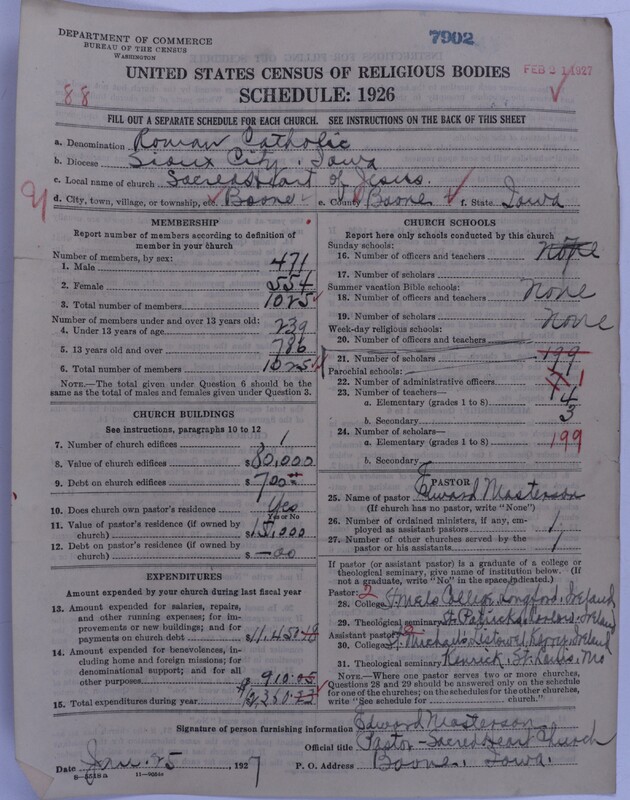 DEPARTMENT OF COMMERCE
BUREAU OF THE CENSUS
WASHINGTON
7902
FEB 1927
UNITED STATES CENSUS OF RELIGIOUS BODIES
SCHEDULE: 1926
88
FILL OUT A SEPARATE SCHEDULE FOR EACH CHURCH. SEE INSTRUCTIONS ON THE BACK OF THIS SHEET
a. Denomination Roman Catholic
b. Diocese Sioux City, Iowa
c. Local name of church Sacred Heart of Jesus.
d. City, town, village, or township, etc. Boone e. County Boone f. State Iowa
91
MEMBERSHIP
Report number of members according to definition of member in your church
Number of members, by sex:
1. Male 471
2. Female 554
3. Total number of members 1025
Number of members under and over 13 years old:
4. Under 13 years of age 239
5. 13 years old and over 786
6. Total number of members 1025
NOTE.—The total given under Question 6 should be
same as the total of males and females given under Question 3.
CHURCH BUILDINGS
See instructions, paragraphs 10 to 12
7. Number of church edifices 1
8. Value of church edifices $80,000
9. Debt on church edifices $700
10. Does church own pastor's residence? Yes
Yes or No
11. Value of pastor's residence (if owned by
church) $15,000
12. Debt on pastor's residence (if owned by
church) $—00
EXPENDITURES
Amount expended by your church during last fiscal year
13. Amount expended for salaries, repairs,
and other running expenses; for im-
provements or new buildings; and for
payments on church debt $11,450
14. Amount expended for benevolences, in-
cluding home and foreign missions; for
denominational support; and for all
other purposes $910.05
15. Total expenditures during year
CHURCH SCHOOLS
Report here only schools conducted by this church
Sunday schools:
16. Number of officers and teachers None
17. Number of scholars
Summer vacation Bible schools:
18. Number of officers and teachers None
19. Number of scholars None
Week-day religious schools:
20. Number of officers and teachers
21. Number of scholars 199
Parochial schools:
22. Number of administrative officers 1
23. Number of teachers—
a. Elementary (grades 1 to 8) 4
b. Secondary 3
24. Number of scholars—
a. Elementary (grades 1 to 8) 199
b. Secondary
PASTOR
25. Name of pastor Edward Masterson
(If church has no pastor, write "None")
26. Number of ordained ministers, if any, em-
ployed as assistant pastors 1
27. Number of other churches served by the
pastor or his assistants 1
If pastor (or assistant pastor) is a graduate of a college or
theological seminary, give name of institution below. (If
not a graduate, write "No" in the space indicated.)
Pastor: 2
28. College St Mels College, Longford, Ireland
29. Theological seminary St Patricks, Carlow, Ireland
Assistant pastor:
30. College St. Michael's, Listowel, Kerry, Ireland
31. Theological seminary Kenrick, St. Louis, Mo
NOTE.—Where one pastor serves two or more churches,
Questions 28 and 29 should be answered only on the schedule
for one of the churches; on the schedules for the other churches,
write "See schedule for church."
Signature of person furnishing information Edward Masterson
Official title Pastor - Sacred Heart Church
Date Jan. 25, 1927 P. O. Address Boone, Iowa.